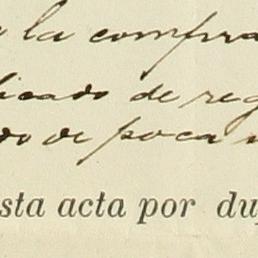 la compra
icado de reg
do de poca
sta acta por du